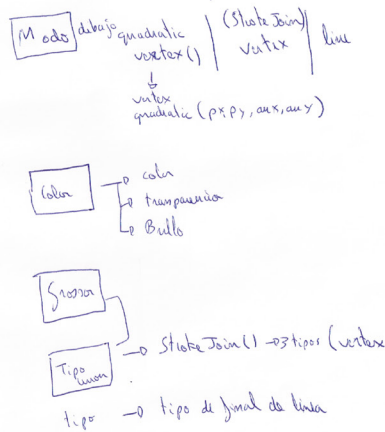 Modo dibujo quadratic | (StrokeJoin) | line
vertex() | vertex
vertex
quadratic (px py, aux, aux y)
Color
color
transparencia
Brillo
Grosor
Tipo
StrokeJoin() → 3 tipos (vertex
tipo → tipo de final de linea